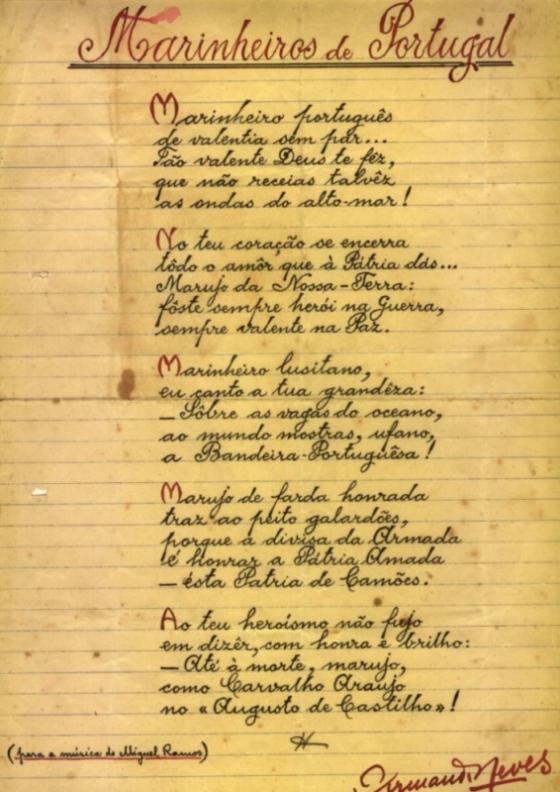 Marinheiros de Portugal
Marinheiro português
de valentia sem par...
Tão valente Deus te fêz,
que não receias talvêz
as ondas do alto-mar!
No teu coração se encerra
tôdo o amôr que à Pátria dás...
Marujo da Nossa-Terra:
fôste sempre herói na Guerra,
sempre valente na Paz.
Marinheiro lusitano,
eu canto a tua grandêza:
— Sôbre as vagas do oceano,
ao mundo mostras, ufano,
a Bandeira-Portuguêsa!
Marujo de farda honrada
traz ao peito galardões,
porque a divisa da Armada
é honrar a Pátria Amada
— ésta Patria de Camões.
Ao teu heroísmo não fujo
em dizêr, com honra e brilho:
— Até à morte, marujo,
como Carvalho Araujo
no «Augusto de Castilho»!
(para a música de Miguel Ramos)
Armando Neves